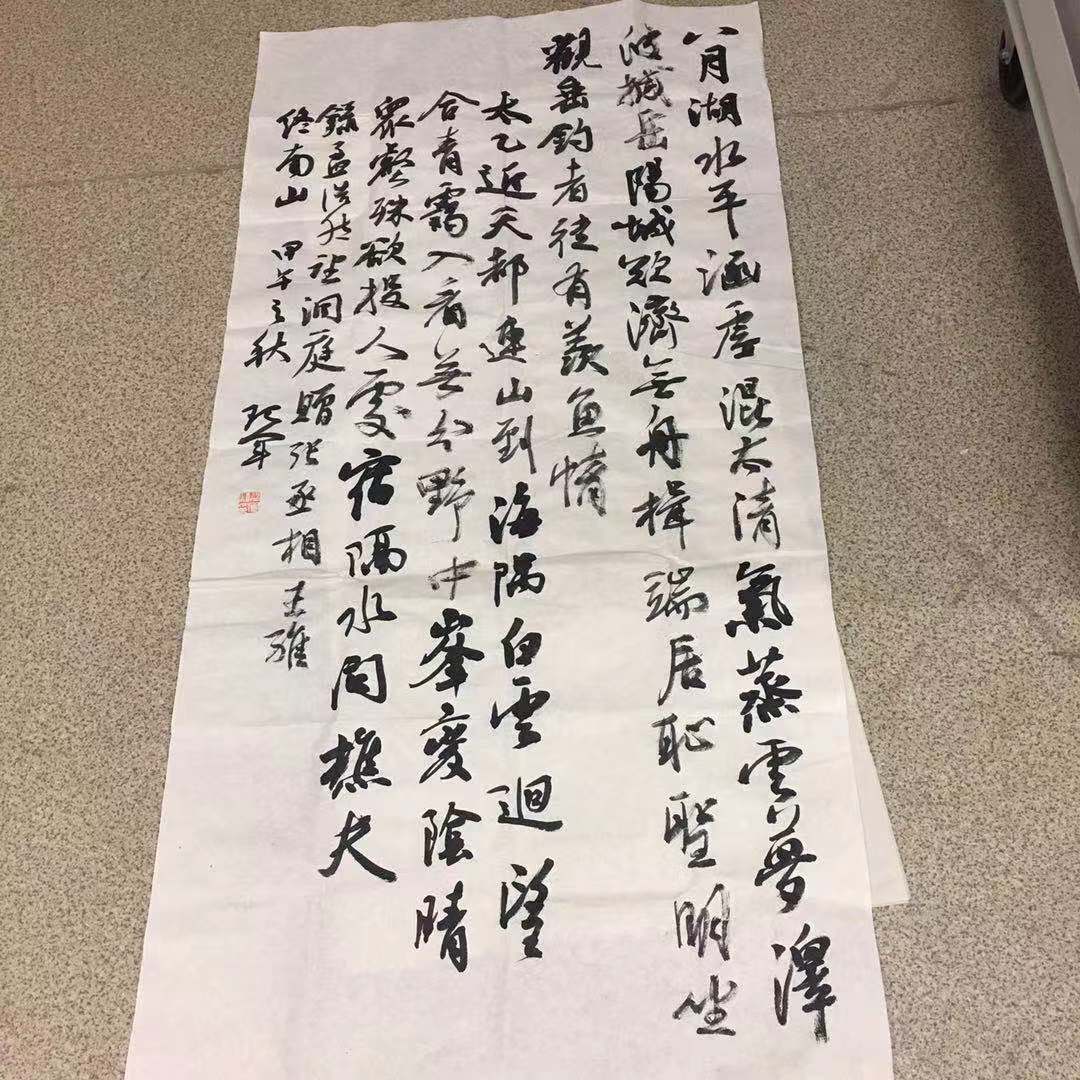 八月湖水平涵虛混太清氣蒸雲夢澤
波撼岳陽城欲濟無舟楫端居恥聖明坐
觀垂釣者徒有羨魚情
太乙近天都連山到海隅白雲迴望
合青靄入看無分野中峯變陰晴
眾壑殊欲投人處宿隔水問樵夫
錄孟浩然望洞庭贈張丞相王維
終南山 甲午之秋